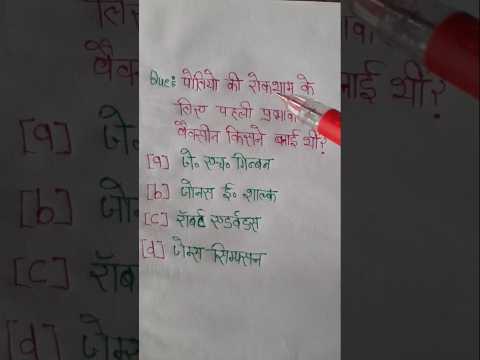 Que: पोलियो की रोकथाम के
लिए पहली प्रभावी
वैक्सीन किसने बनाई थी?
[a] जे॰ एच॰ गिब्बन
[b] जोनस ई॰ शाल्क
[c] रॉबर्ट एडर्वडस
[d] जेम्स सिम्पसन